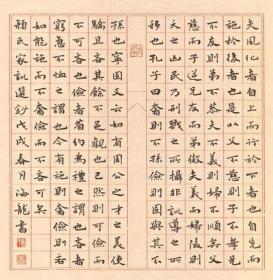 夫風化者自上而行於下者也自先而
施於後者也是以父不慈則子不孝兄
不友則弟不恭夫不義則婦不順矣父
慈而子逆兄友而弟傲夫義而婦陵則
天之凶民乃刑戮之所攝非訓導之所
移也孔子曰奢則不孫儉則固與其不
孫也寧固又云如有周公之才之美使
驕且吝其餘不足觀也已然則可儉而
不可吝已儉者省約為禮之謂也吝者
窮急不恤之謂也今有施則奢儉則吝
如能施而不奢儉而不吝可矣
顏氏家訓選鈔戊戌春月海龍書